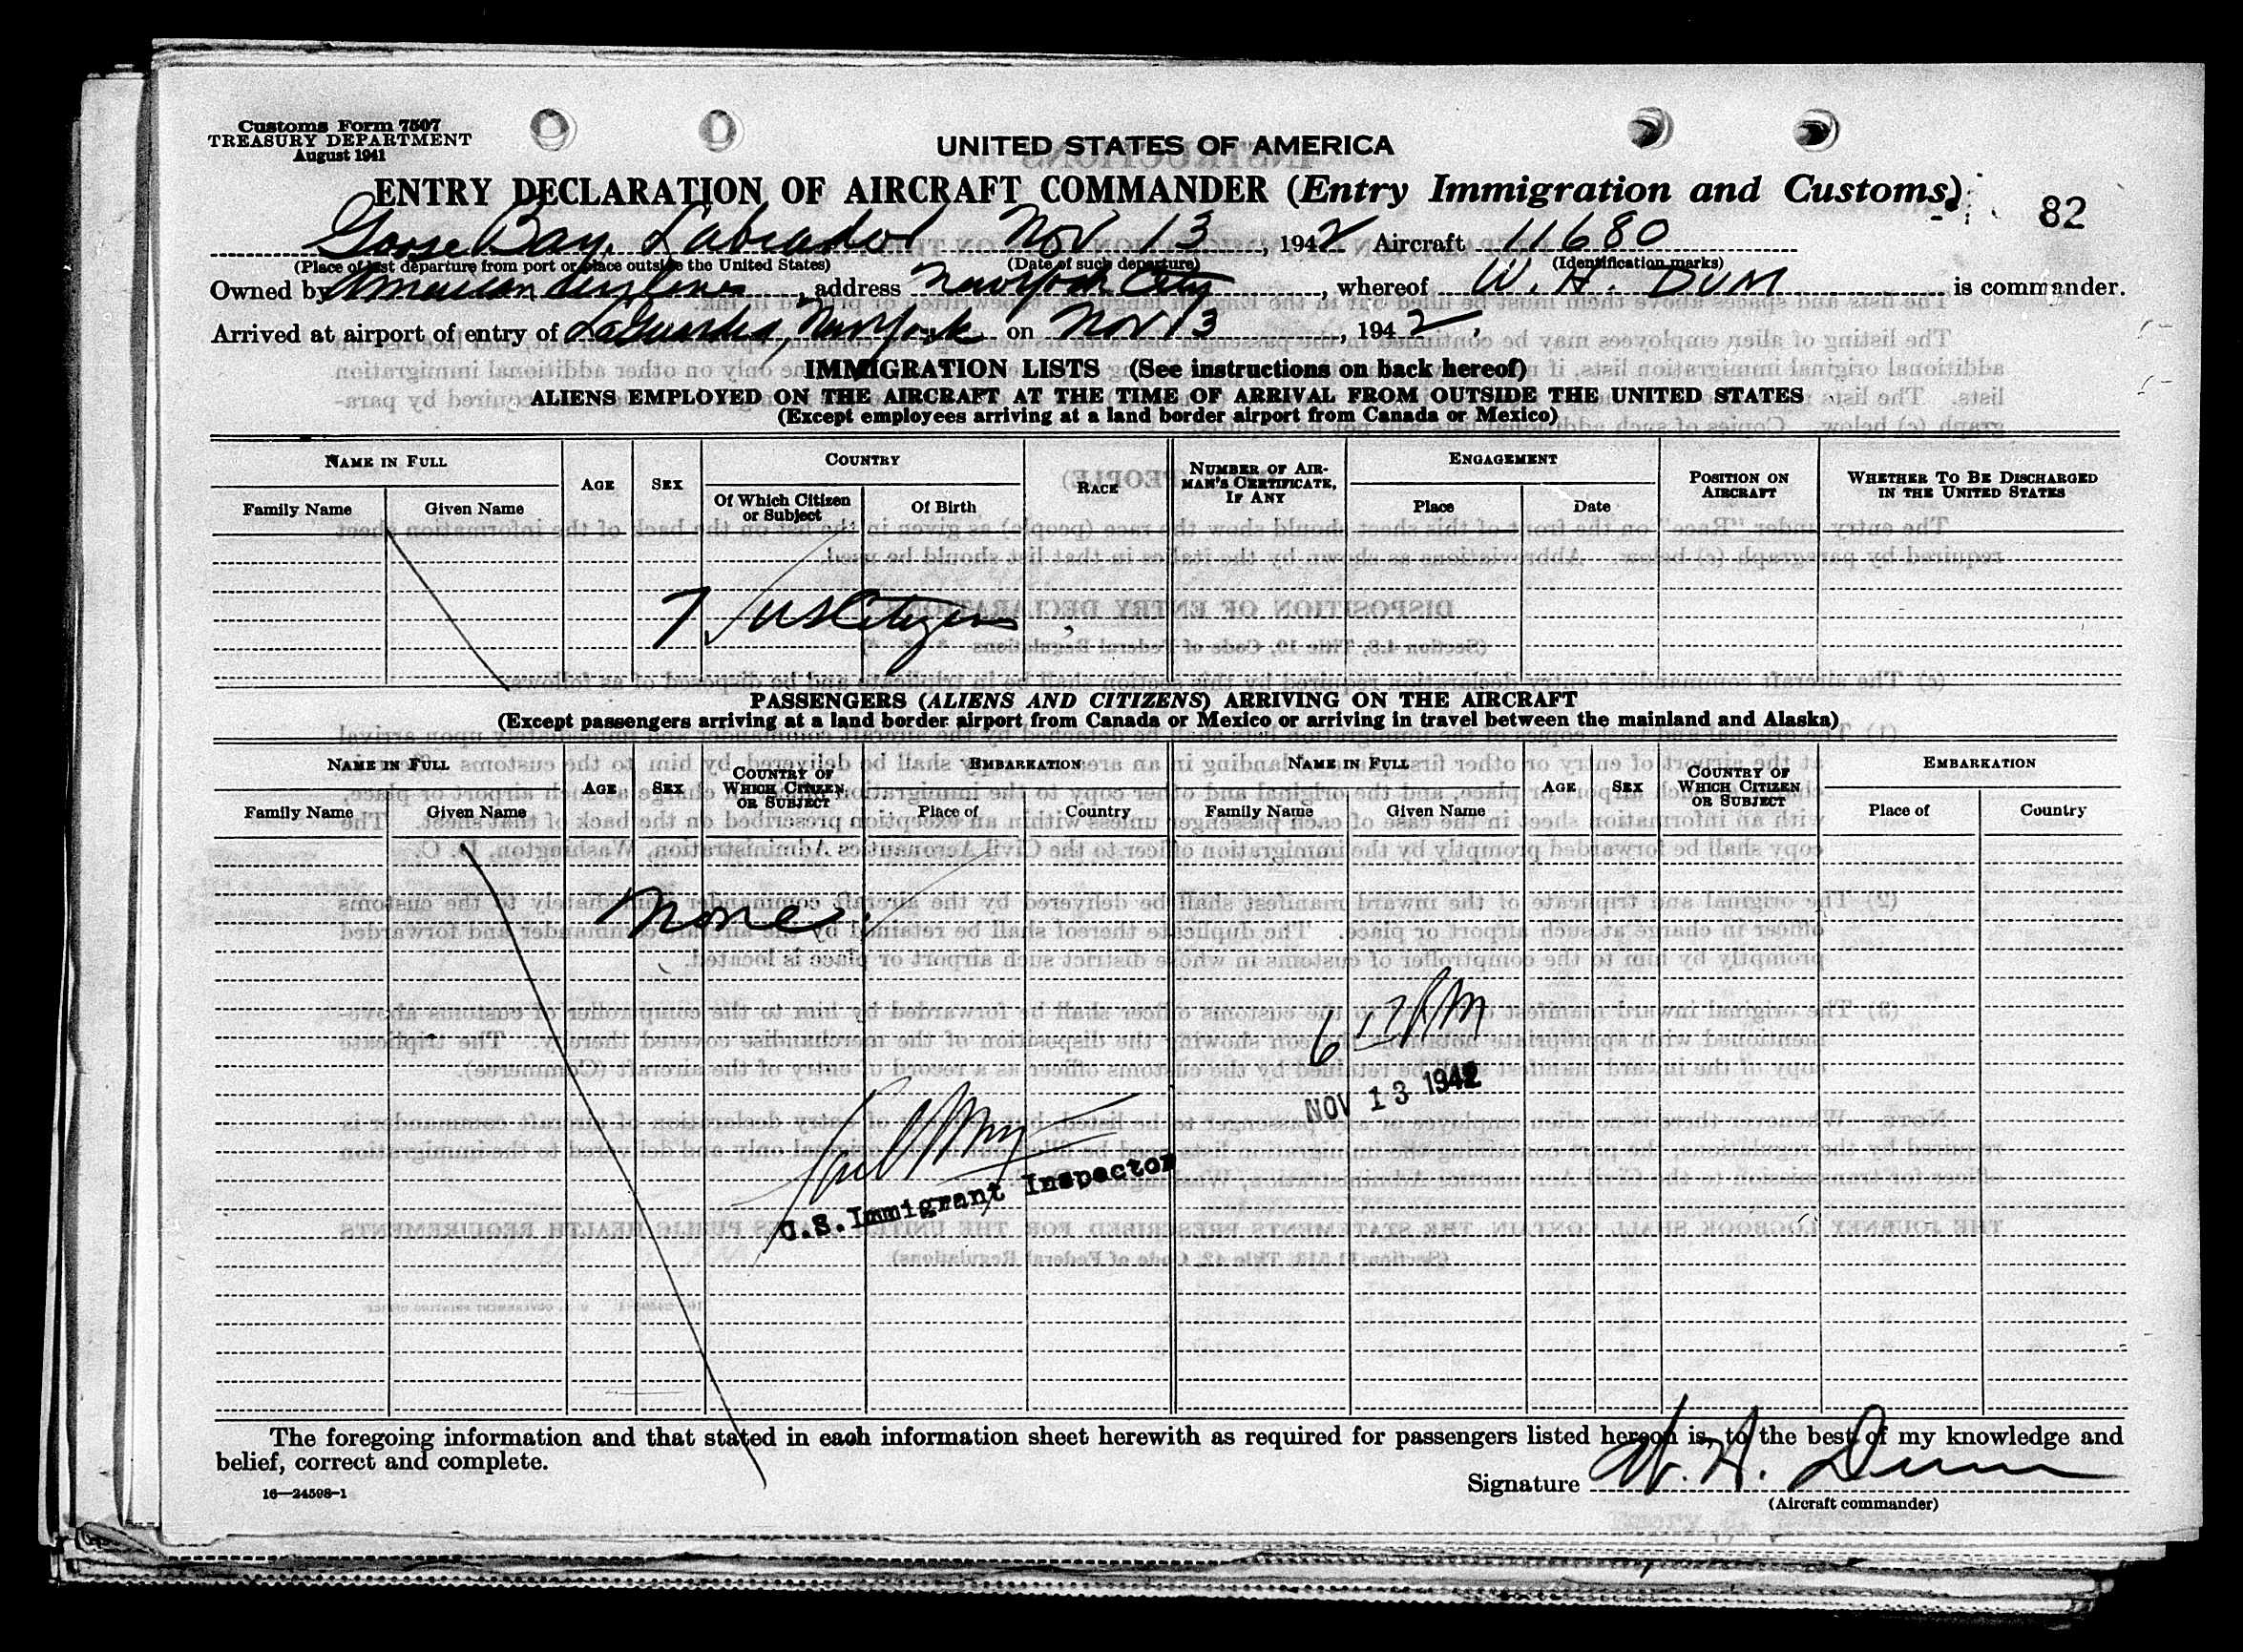 Customs Form 7507
TREASURY DEPARTMENT
August 1941
UNITED STATES OF AMERICA
ENTRY DECLARATION OF AIRCRAFT COMMANDER (Entry Immigration and Customs)
82
Goose Bay, Labrador Nov 13, 1942 Aircraft 11680
(Place of last departure from port or place outside the United States) (Date of such departure) (Identification marks)
Owned by American Airlines, address New York City, whereof W. H. DUNN is commander.
Arrived at airport of entry of LaGuardia, New York on Nov 13, 1942.
IMMIGRATION LISTS (See instructions on back hereof)
ALIENS EMPLOYED ON THE AIRCRAFT AT THE TIME OF ARRIVAL FROM OUTSIDE THE UNITED STATES
(Except employees arriving at a land border airport from Canada or Mexico)
NAME IN FULL AGE SEX COUNTRY RACE NUMBER OF AIRMAN'S CERTIFICATE, IF ANY ENGAGEMENT POSITION ON AIRCRAFT WHETHER TO BE DISCHARGED IN THE UNITED STATES
Family Name Given Name Of Which Citizen or Subject Of Birth Place Date
7 US Citizens
PASSENGERS (ALIENS AND CITIZENS) ARRIVING ON THE AIRCRAFT
(Except passengers arriving at a land border airport from Canada or Mexico or arriving in travel between the mainland and Alaska)
NAME IN FULL AGE SEX COUNTRY OF WHICH CITIZEN OR SUBJECT EMBARKATION NAME IN FULL AGE SEX COUNTRY OF WHICH CITIZEN OR SUBJECT EMBARKATION
Family Name Given Name Place of Country Family Name Given Name Place of Country
None
PM
NOV 13 1942
U.S. Immigrant Inspector
The foregoing information and that stated in each information sheet herewith as required for passengers listed hereon is, to the best of my knowledge and
belief, correct and complete.
Signature W. H. Dunn
16—24598-1
(Aircraft commander)